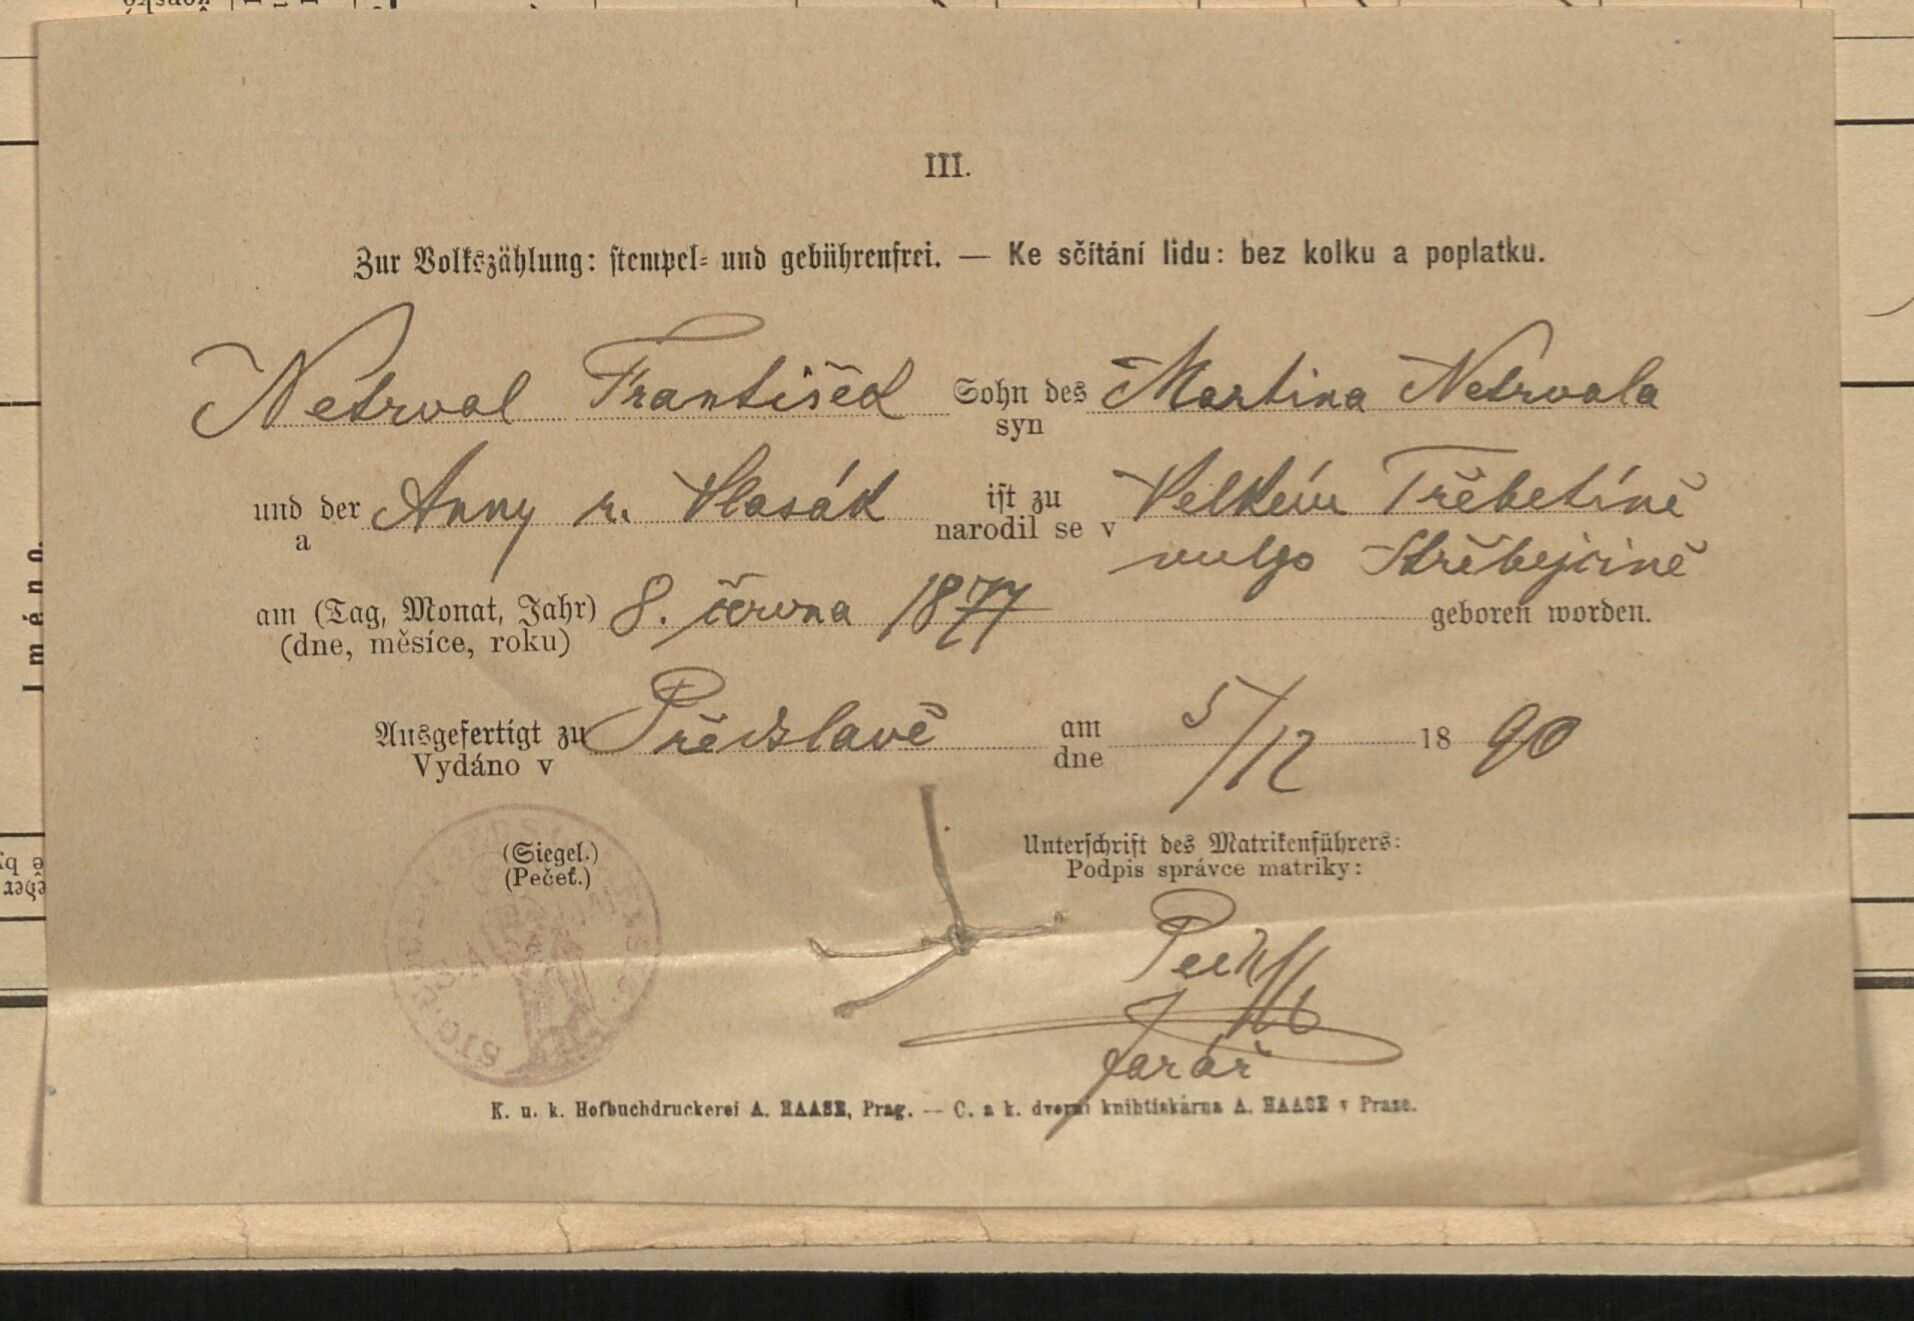 III.
Zur Volkszählung: stempel- und gebührenfrei. — Ke sčítání lidu: bez kolku a poplatku.
Netrval František Sohn des Martina Netrvala
syn
und der Anny r. Vlasák ist zu Velkém Třebetíně
a narodil se v
vulgo Střebejčině
am (Tag, Monat, Jahr) 8. června 1877 geboren worden.
(dne, měsíce, roku)
Ausgefertigt zu Předslavě am 5/12 1890
Vydáno v dne
(Siegel.) Unterschrift des Matrikenführers:
(Pečeť.) Podpis správce matriky:
farář
K. u. k. Hofbuchdruckerei A. HAASE, Prag. — C. a k. dvorní knihtiskárna A. HAASE v Praze.
Iméno